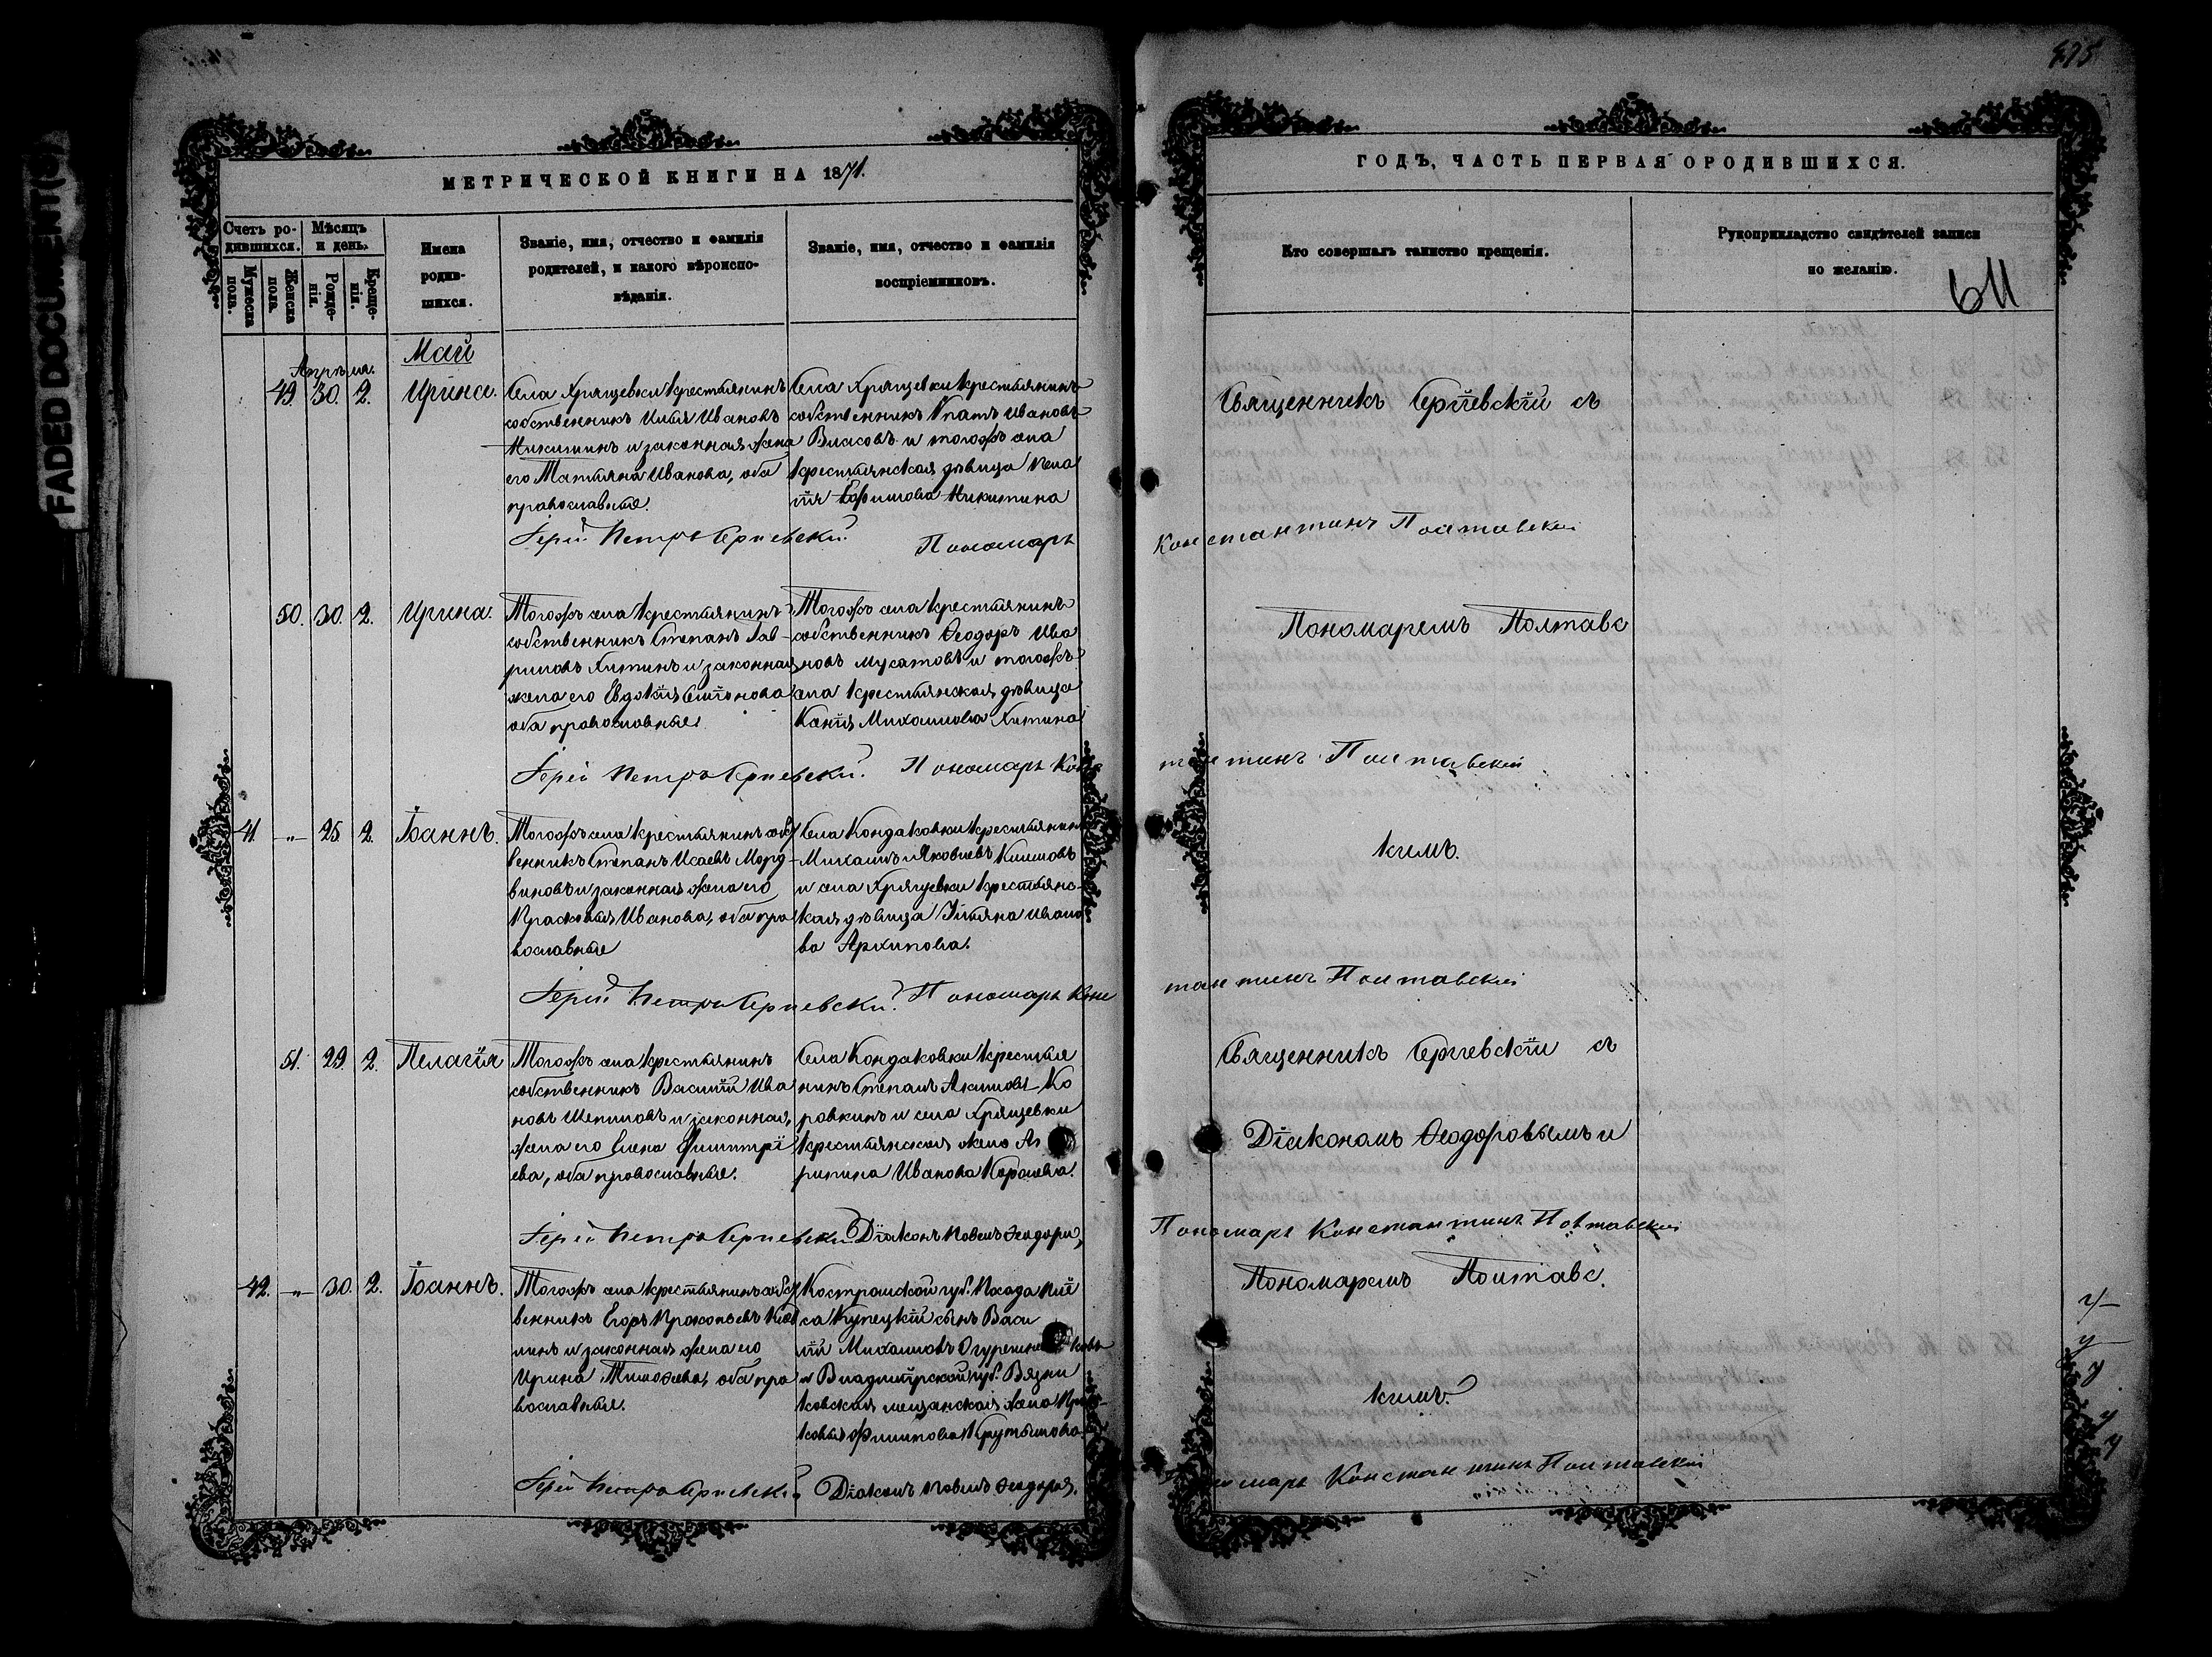 FADED DOCUMENT(S)
МЕТРИЧЕСКОЙ КНИГИ НА 1871.
Счетъ ро-
дившихся.
Мѣсяцъ
и день.
Мужеска
пола.
Женска
пола.
Рожде-
нія.
Креще-
нія.
Имена
родив-
шихся.
Званіе, имя, отчество и фамилія
родителей, и какого вѣроиспо-
вѣданія.
Званіе, имя, отчество и фамилія
воспріемниковъ.
Май
Апрѣля.
49. 30. 2. Ирина.
Села Хрящевки крестьянинъ
собственникъ Илья Ивановъ
Никитинъ и законная жена
его Татьяна Иванова, оба
православные.
Села Хрящевки крестьянинъ
собственникъ Ипатъ Ивановъ
Власовъ и тогожъ села
крестьянская дѣвица Пела
гія Никитина
Іерей Петръ Сергіевскій.
Пономарь
50. 30. 2. Ирина.
Тогожъ села крестьянинъ
собственникъ Степанъ Гав-
риловъ Хитинъ и законная
жена его Евдокія
оба православные.
Тогожъ села крестьянинъ
собственникъ Ѳеодоръ Ива
новъ Мусатовъ и тогожъ
села крестьянская дѣвица
Ксенія Михаилова Хитина
Іерей Петръ Сергіевскій.
Пономарь Конс
41. -„- 25. 2. Іоаннъ.
Тогожъ села крестьянинъ собст
венникъ Степанъ Исаевъ Морд-
виновъ и законная жена его
Прасковья Иванова, оба пра
вославные
Села Кондаковки крестьянинъ
Михаилъ Яковлевъ Климовъ
и села Хрящевки крестьянс-
кая дѣвица Ивано
ва Архипова.
Іерей Петръ Сергіевскій.
Пономарь Конс
51. 29. 2. Пелагія
Тогожъ села крестьянинъ
собственникъ Василій Ива
новъ Шепиловъ и законная
жена его Елена Димитрі
ева, оба православные.
Села Кондаковки крестья
нинъ Степанъ Акимовъ Ко
ровкинъ и села Хрящевки
крестьянская жена Аг
рипина Иванова Королева.
Іерей Петръ Сергіевскій
Діаконъ Павелъ Ѳеодоров,
42. -„- 30. 2. Іоаннъ.
Тогожъ села крестьянинъ собст
венникъ Егоръ Прокопьевъ
и законная жена его
Ирина Тимоѳеева, оба пра
вославные.
Костромской губ. Посада Плё
са Купецкій сынъ Васи
лій Михаиловъ Огуречниковъ
и Владимірской губ. Вязни
ковская мещанская жена Прас-
ковья Филипова Крутышова.
Іерей Петръ Сергіевскій
Діаконъ Павелъ Ѳеодоров.
ГОДЪ, ЧАСТЬ ПЕРВАЯ О РОДИВШИХСЯ.
Кто совершалъ таинство крещенія.
Рукоприкладство свидѣтелей записи
по желанію.
611
Священникъ Сергіевскій съ
Константинъ Полтавскій
Пономаремъ Полтавс
тантинъ Полтавскій
кимъ.
тантинъ Полтавскій
Священникъ Сергіевскій съ
Діакономъ Ѳеодоровымъ и
Пономарь Константинъ Полтавскій
Пономаремъ Полтавс.
кимъ.
Пономарь Константинъ Полтавскій